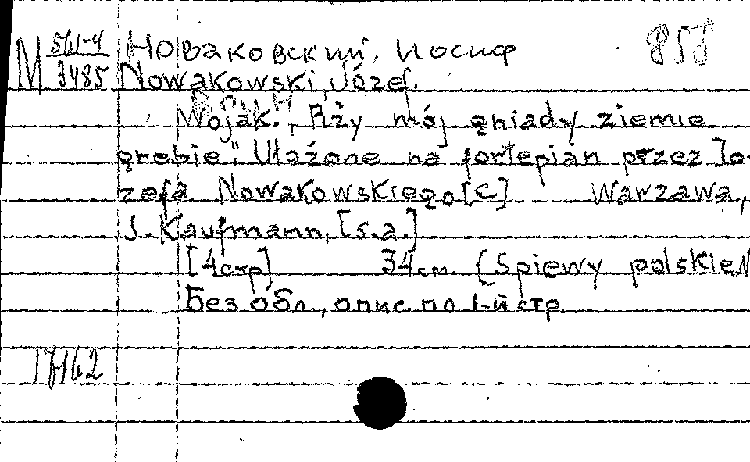 М 561-4/3485
Новаковский, Иосиф
Nowakowski, Józef.
Wojak. "Rży mój gniady ziemie
grebie". Ułożone na fortepian przez Jo-
zefa Nowakowskiego [C] Warzawa,
J. Kaufmann, [s.a.]
[4 стр] 34 см. (Spiewy polskie N
Без обл., опис по 1-й стр
17162